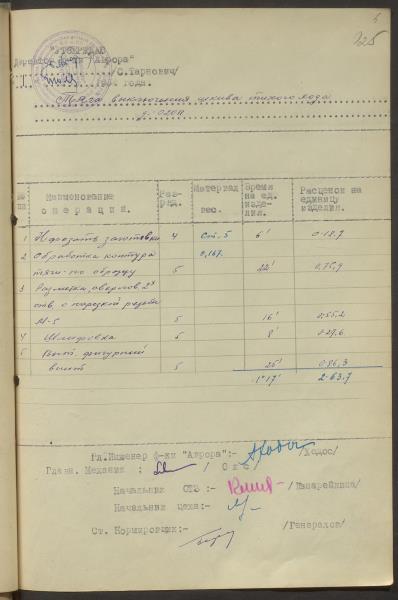 5
325
"УТВЕРЖДАЮ
Директор ф-ки "Аврора"
/С.Тарнович/
194 года.
Тяга выключения шкива тихого хода
Д-020П
№ пп
Наименование операция.
Раз-ряд.
Материал вес.
Время на ед. изде-лия.
Расценок на единицу изделия.
1 Нарезать заготовки 4 Ст. 5 6' 0-18.7
2 Обработка контура 0,167.
тяги по образцу 5 22' 0,75,9
3 Разметка, сверлов 2х
отв. с нарезкой резьбы
М-5 5 16' 0-55.2
4 Шлифовка 5 8' 0-27.6
5 Вып. фигурный
винт 5 25' 0-86,3
1°17' 2-63.7
Гл.Инженер ф-ки "Аврора":- /Ходос/
Главн. Механик : / О к с /
Начальник ОТБ :-
Начальник цеха:-
Ст. Нормировщик:- /Генералов/